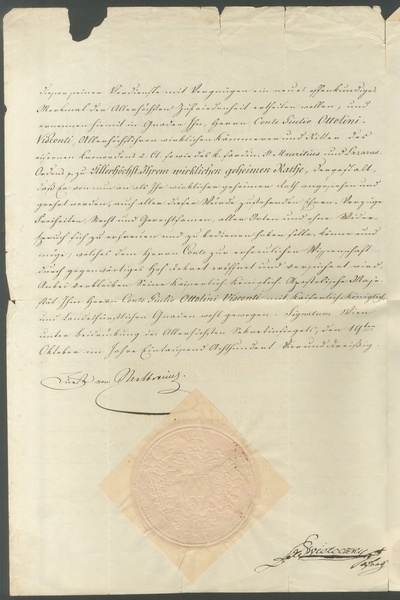 dieser seiner Verdienste mit Vergnügen ein neues offenkundiges
Merkmal der Allerhöchsten Zufriedenheit ertheilen wollen, und
ernennen hiemit in Gnaden Ihn, Herrn Conte Giulio Ottolini-
Visconti, Allerhöchstihren wirklichen Kämmerer und Ritter des
eisernen Kronordens 2. Cl. sowie des k. sardin. St. Mauritius und Lazarus-
Ordens zu Allerhöchst-Ihrem wirklichen geheimen Rathe, dergestalt,
daß er von nun an als Ihr wirklicher geheimer Rath angesehen und
geehrt werden, auch aller dieser Würde zustehenden Ehren, Vorzüge
Freiheiten, Recht und Gerechtsamen, aller Orten und ohne Wider-
spruch sich zu erfreuen und zu bedienen haben solle, könne und
möge, welches dem Herrn Conte zur erfreulichen Wissenschaft
durch gegenwärtiges Hof dekret eröffnet und versichert wird.
Anbei verbleiben Seine Kaiserlich Königlich Apostolische Maje-
stät Ihm Herrn Conte Giulio Ottolini Visconti mit Kaiserlich Königlich
und Landesfürstlichen Gnaden wohl gewogen. Signatum Wien
unter beidrückung des Allerhöchsten Sekretinsiegels, den 19ten
Oktober im Jahre Eintausend Achthundert Vierunddreißig.
Fürst von Metternich